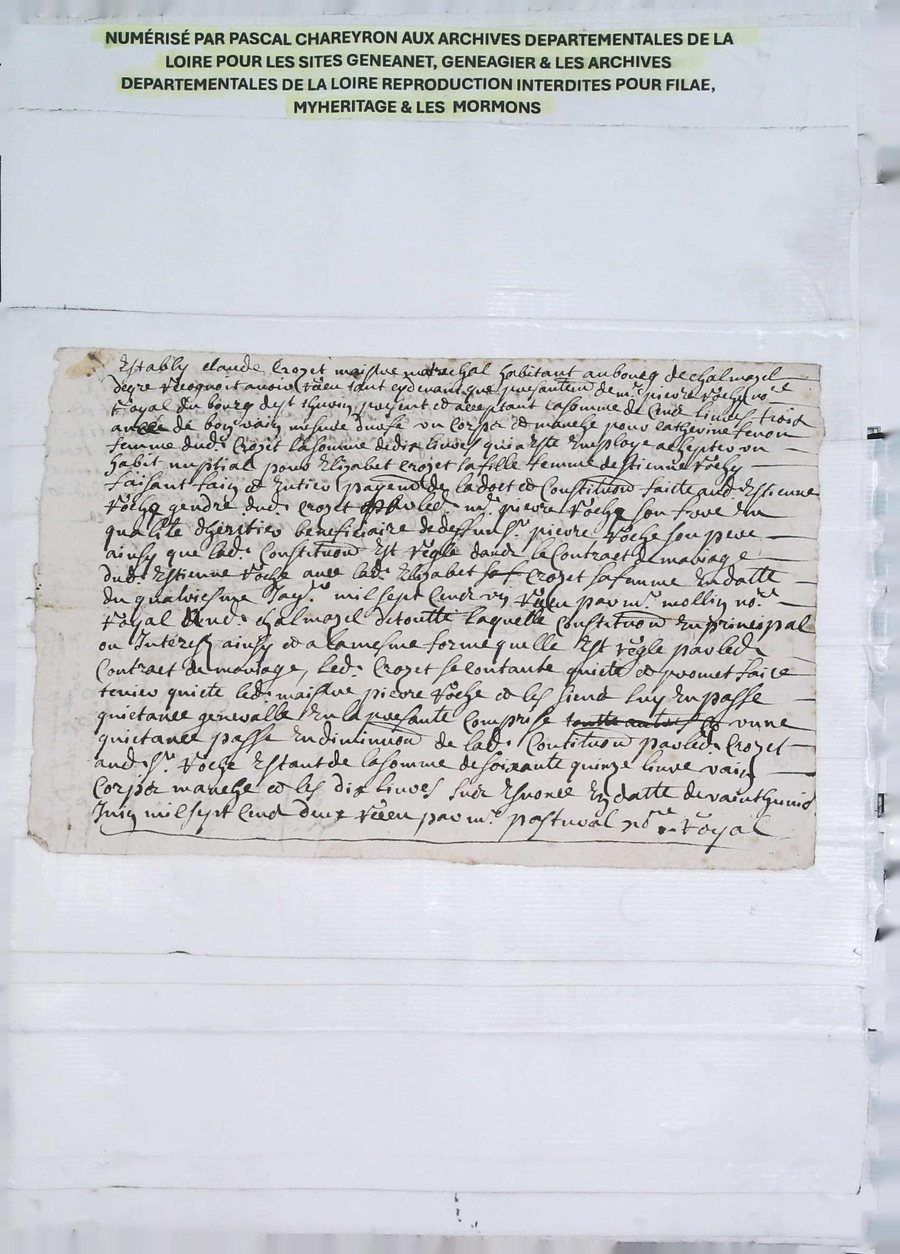 NUMÉRISÉ PAR PASCAL CHAREYRON AUX ARCHIVES DEPARTEMENTALES DE LA
LOIRE POUR LES SITES GENEANET, GENEAGIER & LES ARCHIVES
DEPARTEMENTALES DE LA LOIRE REPRODUCTION INTERDITES POUR FILAE,
MYHERITAGE & LES MORMONS
Estably claude Crozet maistre marechal habitant au bourg de chalmazel
degre recognoit avoir receu tant cydevant que presantem de mr pierre Roche no re
Royal du bourg de st present et acceptant la somme de cinq livres trois
de mesure un corps et manche pour Catherine
femme dud. Crozet la somme de dix livres qui a este employe a achepter un
habit nuptial pour Elizabet Crozet sa fille femme destienne Roche
faisant faix et entier payem de la dot et Constituon faicte aud. Estienne
Roche gendre dud. Crozet par led. mr. pierre Roche son frere en
qualite dheretier beneficiaire de deffunt sr. pierre Roche son pere
ainsy que lad. Constituon est regle dans le Contract de mariage
dud. Estienne Roche avec lad. Elizabet Crozet sa femme en datte
du quatriesme mil sept cent un receu par mr. mollin nore.
Royal dud. chalmazel de toutte laquelle Constituon en principal
ou Interest ainsy et a la mesme forme quelle est regle par led.
Contract de mariage, led. Crozet se contante quicte et promet faire
tenir quicte led. maistre pierre Roche et les siens luy en passe
quictance generalle en la presante comprise toutte autres unne
quictance passe en diminuon de lad. Contituon par led. Crozet
aud. sr. Roche estant de la somme de soixante quinze livre
Corps manche et les dix livres susd. enonce en datte de vaint
Juin mil sept cent deux receu par mr. pastural nore Royal